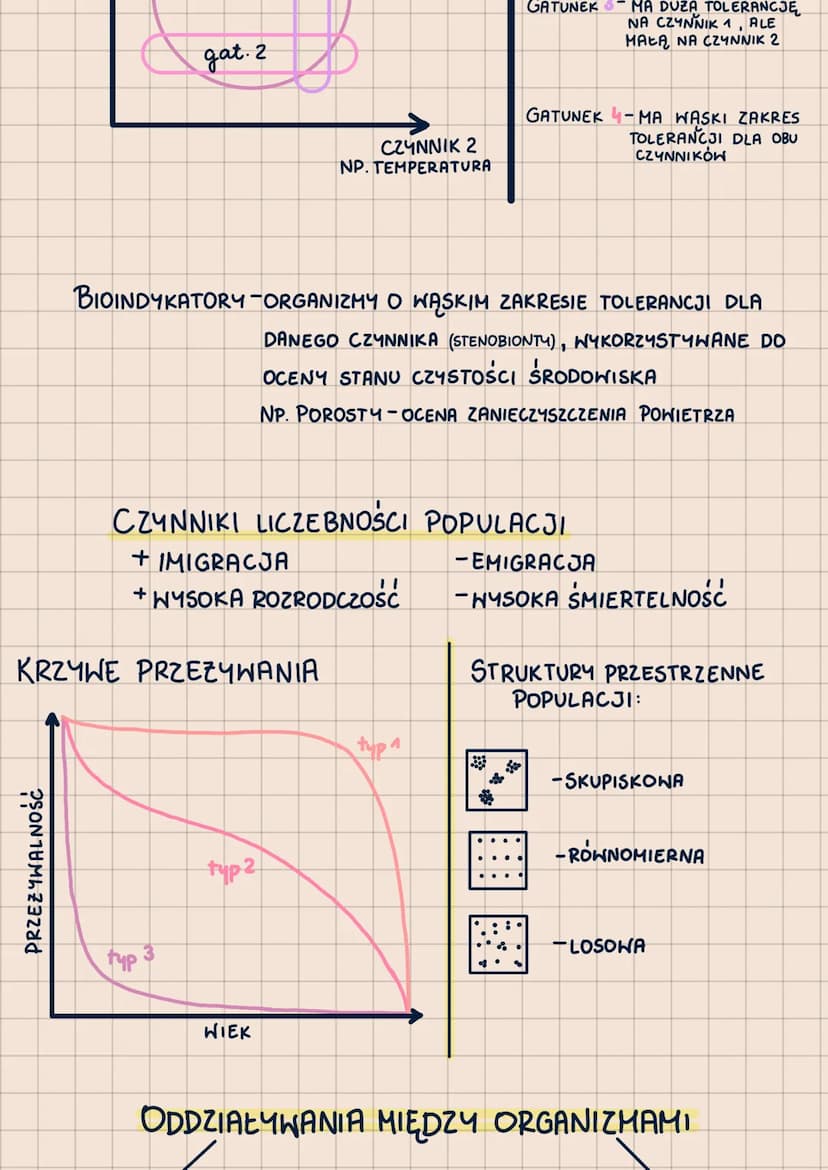 GATUNEK 3 - MA DUŻĄ TOLERANCJĘ
NA CZYNNIK 1, ALE
MAŁĄ NA CZYNNIK 2
gat. 2
GATUNEK 4 - MA WĄSKI ZAKRES
TOLERANCJI DLA OBU
CZYNNIKÓW
CZYNNIK 2
NP. TEMPERATURA
BIOINDYKATORY - ORGANIZMY O WĄSKIM ZAKRESIE TOLERANCJI DLA
DANEGO CZYNNIKA (STENOBIONTY), WYKORZYSTYWANE DO
OCENY STANU CZYSTOŚCI ŚRODOWISKA
NP. POROSTY - OCENA ZANIECZYSZCZENIA POWIETRZA
CZYNNIKI LICZEBNOŚCI POPULACJI
+ IMIGRACJA
- EMIGRACJA
+ WYSOKA ROZRODCZOŚĆ
- WYSOKA ŚMIERTELNOŚĆ
KRZYWE PRZEŻYWANIA
typ 1
typ 2
typ 3
PRZEŻYWALNOŚĆ
WIEK
STRUKTURY PRZESTRZENNE
POPULACJI:
- SKUPISKOWA
- RÓWNOMIERNA
- LOSOWA
ODDZIAŁYWANIA MIĘDZY ORGANIZMAMI